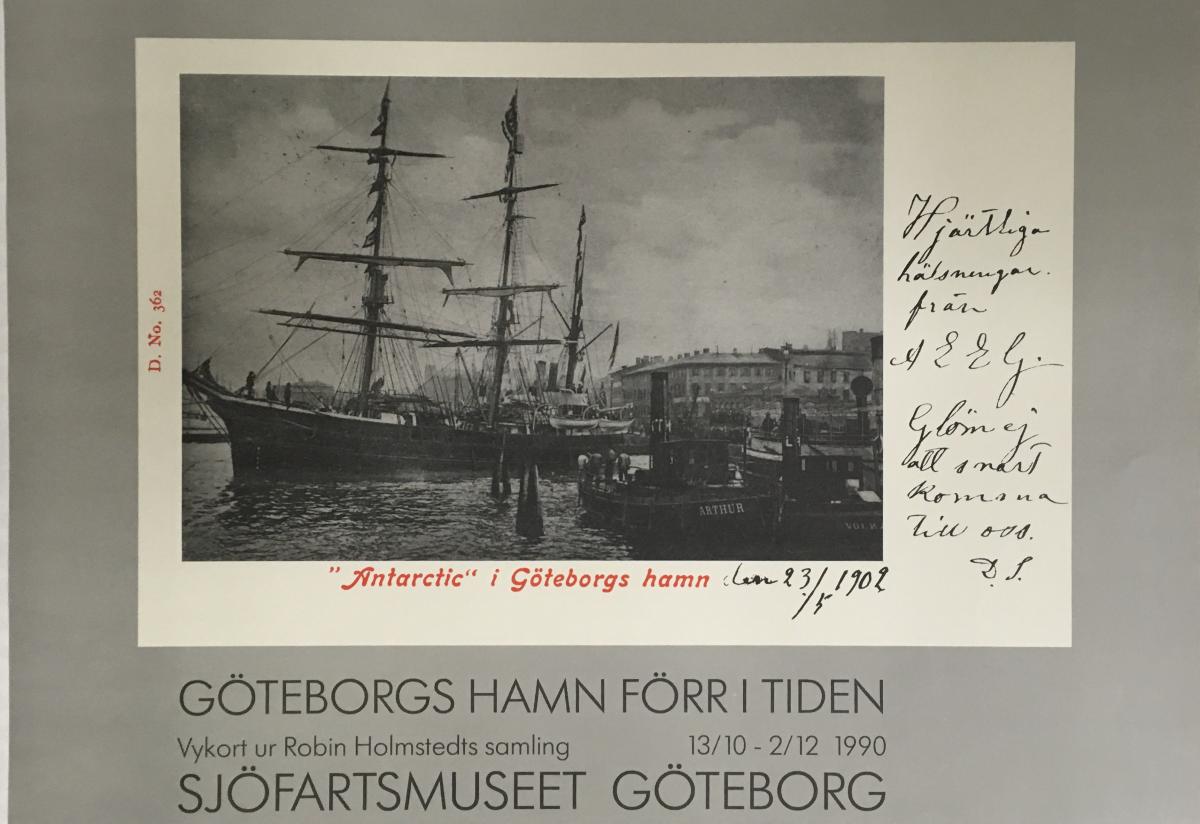 D. No. 362
Hjärtliga
hälsningar.
från
A E E G.
Glöm ej
att snart
komma
till oss.
D. S.
ARTHUR
"Antarctic" i Göteborgs hamn den 23/5 1902
GÖTEBORGS HAMN FÖRR I TIDEN
Vykort ur Robin Holmstedts samling 13/10 - 2/12 1990
SJÖFARTSMUSEET GÖTEBORG